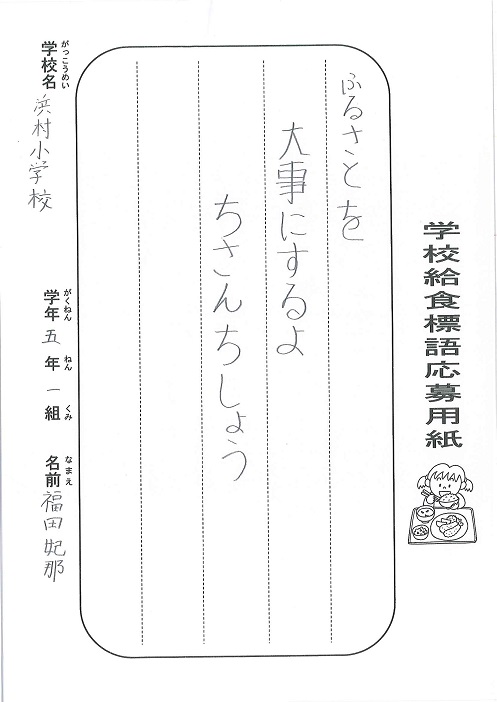 学校給食標語応募用紙
ふるさとを
大事にするよ
ちさんちしょう
学校名 浜村小学校
がっこうめい
学年 五 年 一 組
がくねん ねん くみ
名前 福田 妃那
なまえ